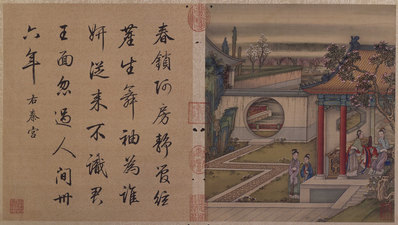 春鎖阿房靜管絃
塵生舞袖為誰
妍從來不識君
王面忽過人間卅
六年
右秦宮